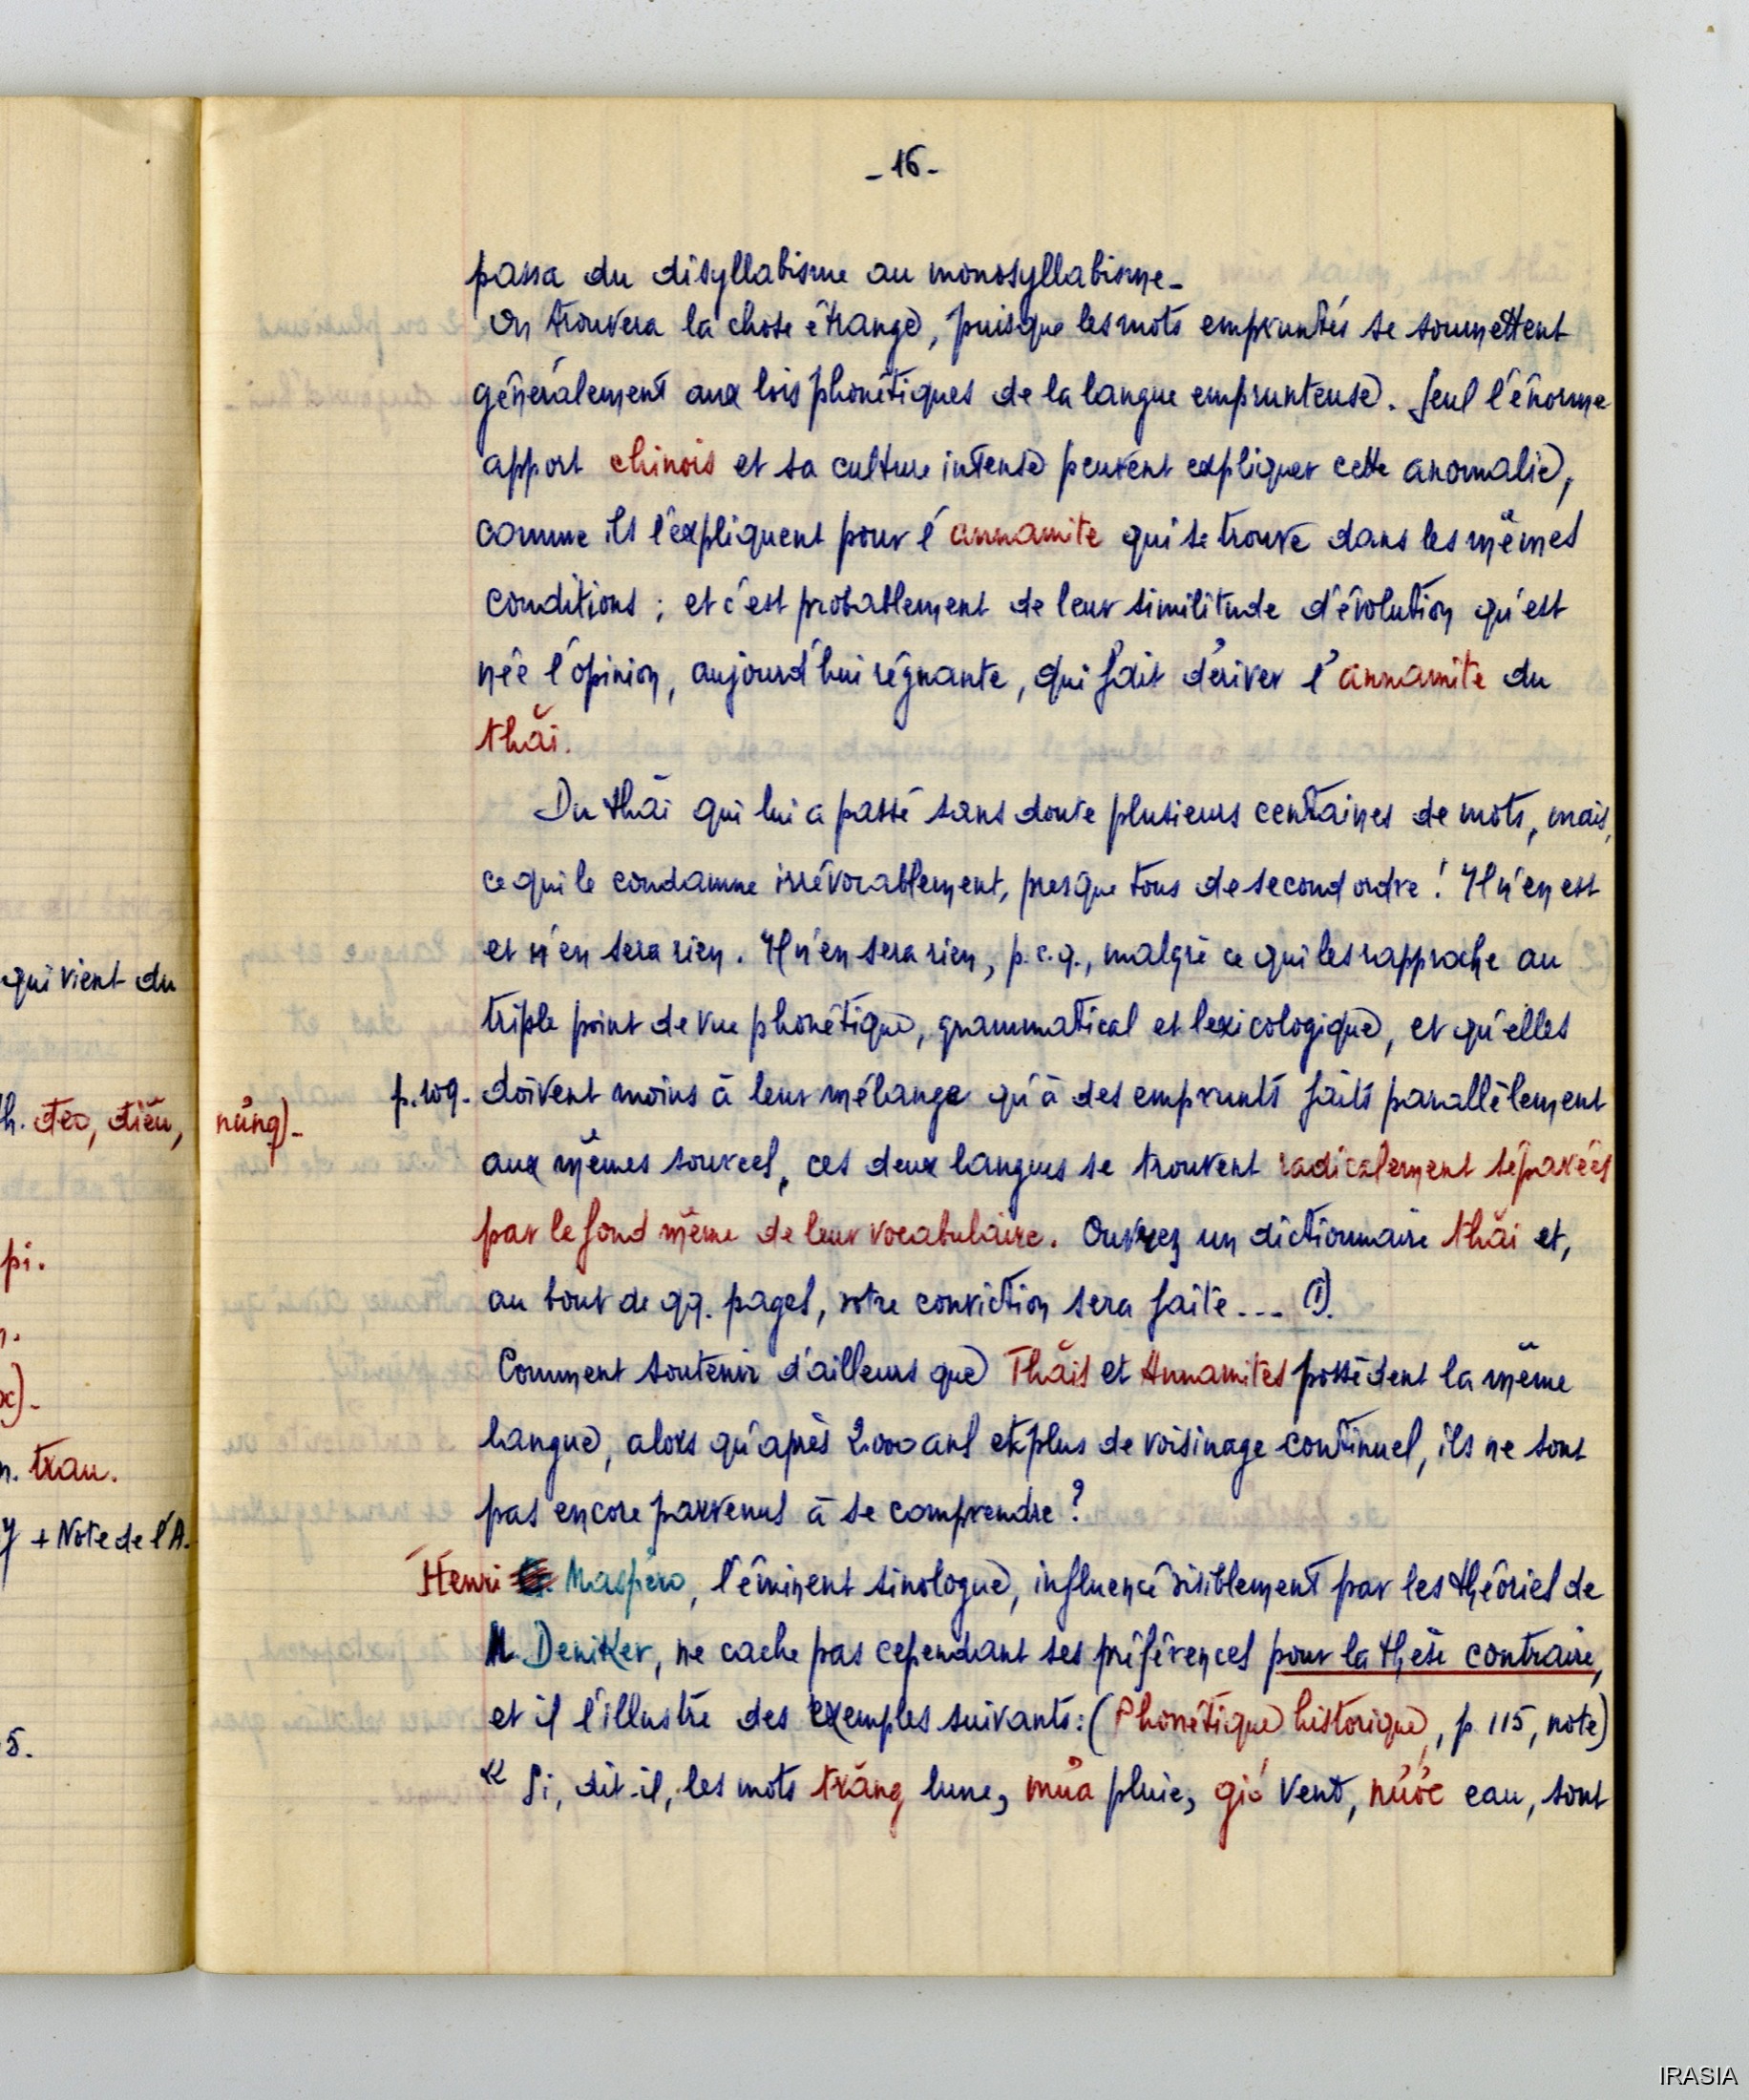 - 16 -
passa du disyllabisme au monosyllabisme -
On trouvera la chose étrange, puisque les mots empruntés se soumettent
généralement aux lois phonétiques de la langue emprunteuse. Seul l'énorme
apport chinois et sa culture intense peuvent expliquer cette anomalie,
comme ils l'expliquent pour l'annamite qui se trouve dans les mêmes
conditions ; et c'est probablement de leur similitude d'évolution qu'est
née l'opinion, aujourd'hui régnante, qui fait dériver l'annamite du
thăi.
Du thăi qui lui a passé sans doute plusieurs centaines de mots, mais,
ce qui le condamne irrévocablement, presque tous de second ordre ! Il n'en est
et n'en sera rien. Il n'en sera rien, p.c.q., malgré ce qui les rapproche au
triple point de vue phonétique, grammatical et lexicologique, et qu'elles
p.109. doivent moins à leur mélange qu'à des emprunts faits parallèlement
aux mêmes sources, ces deux langues se trouvent radicalement séparées
par le fond même de leur vocabulaire. Ouvrez un dictionnaire thăi et,
au bout de qq. pages, votre conviction sera faite --- (1).
Comment soutenir d'ailleurs que Thăis et Annamites possèdent la même
langue, alors qu'après 2.000 ans et plus de voisinage continuel, ils ne sont
pas encore parvenus à se comprendre ?
Henri Maspéro, l'éminent sinologue, influencé visiblement par les théories de
M. Deniker, ne cache pas cependant ses préférences pour la thèse contraire,
et il l'illustre des exemples suivants : (Phonétique historique, p. 115, note)
« Si, dit-il, les mots trăng lune, mưa pluie, gió vent, nước eau, sont
qui vient du
h. đeo, điếu, nừng) -
pi.
n.
x) -
n. trau.
y + Note de l'A.
5.
IRASIA